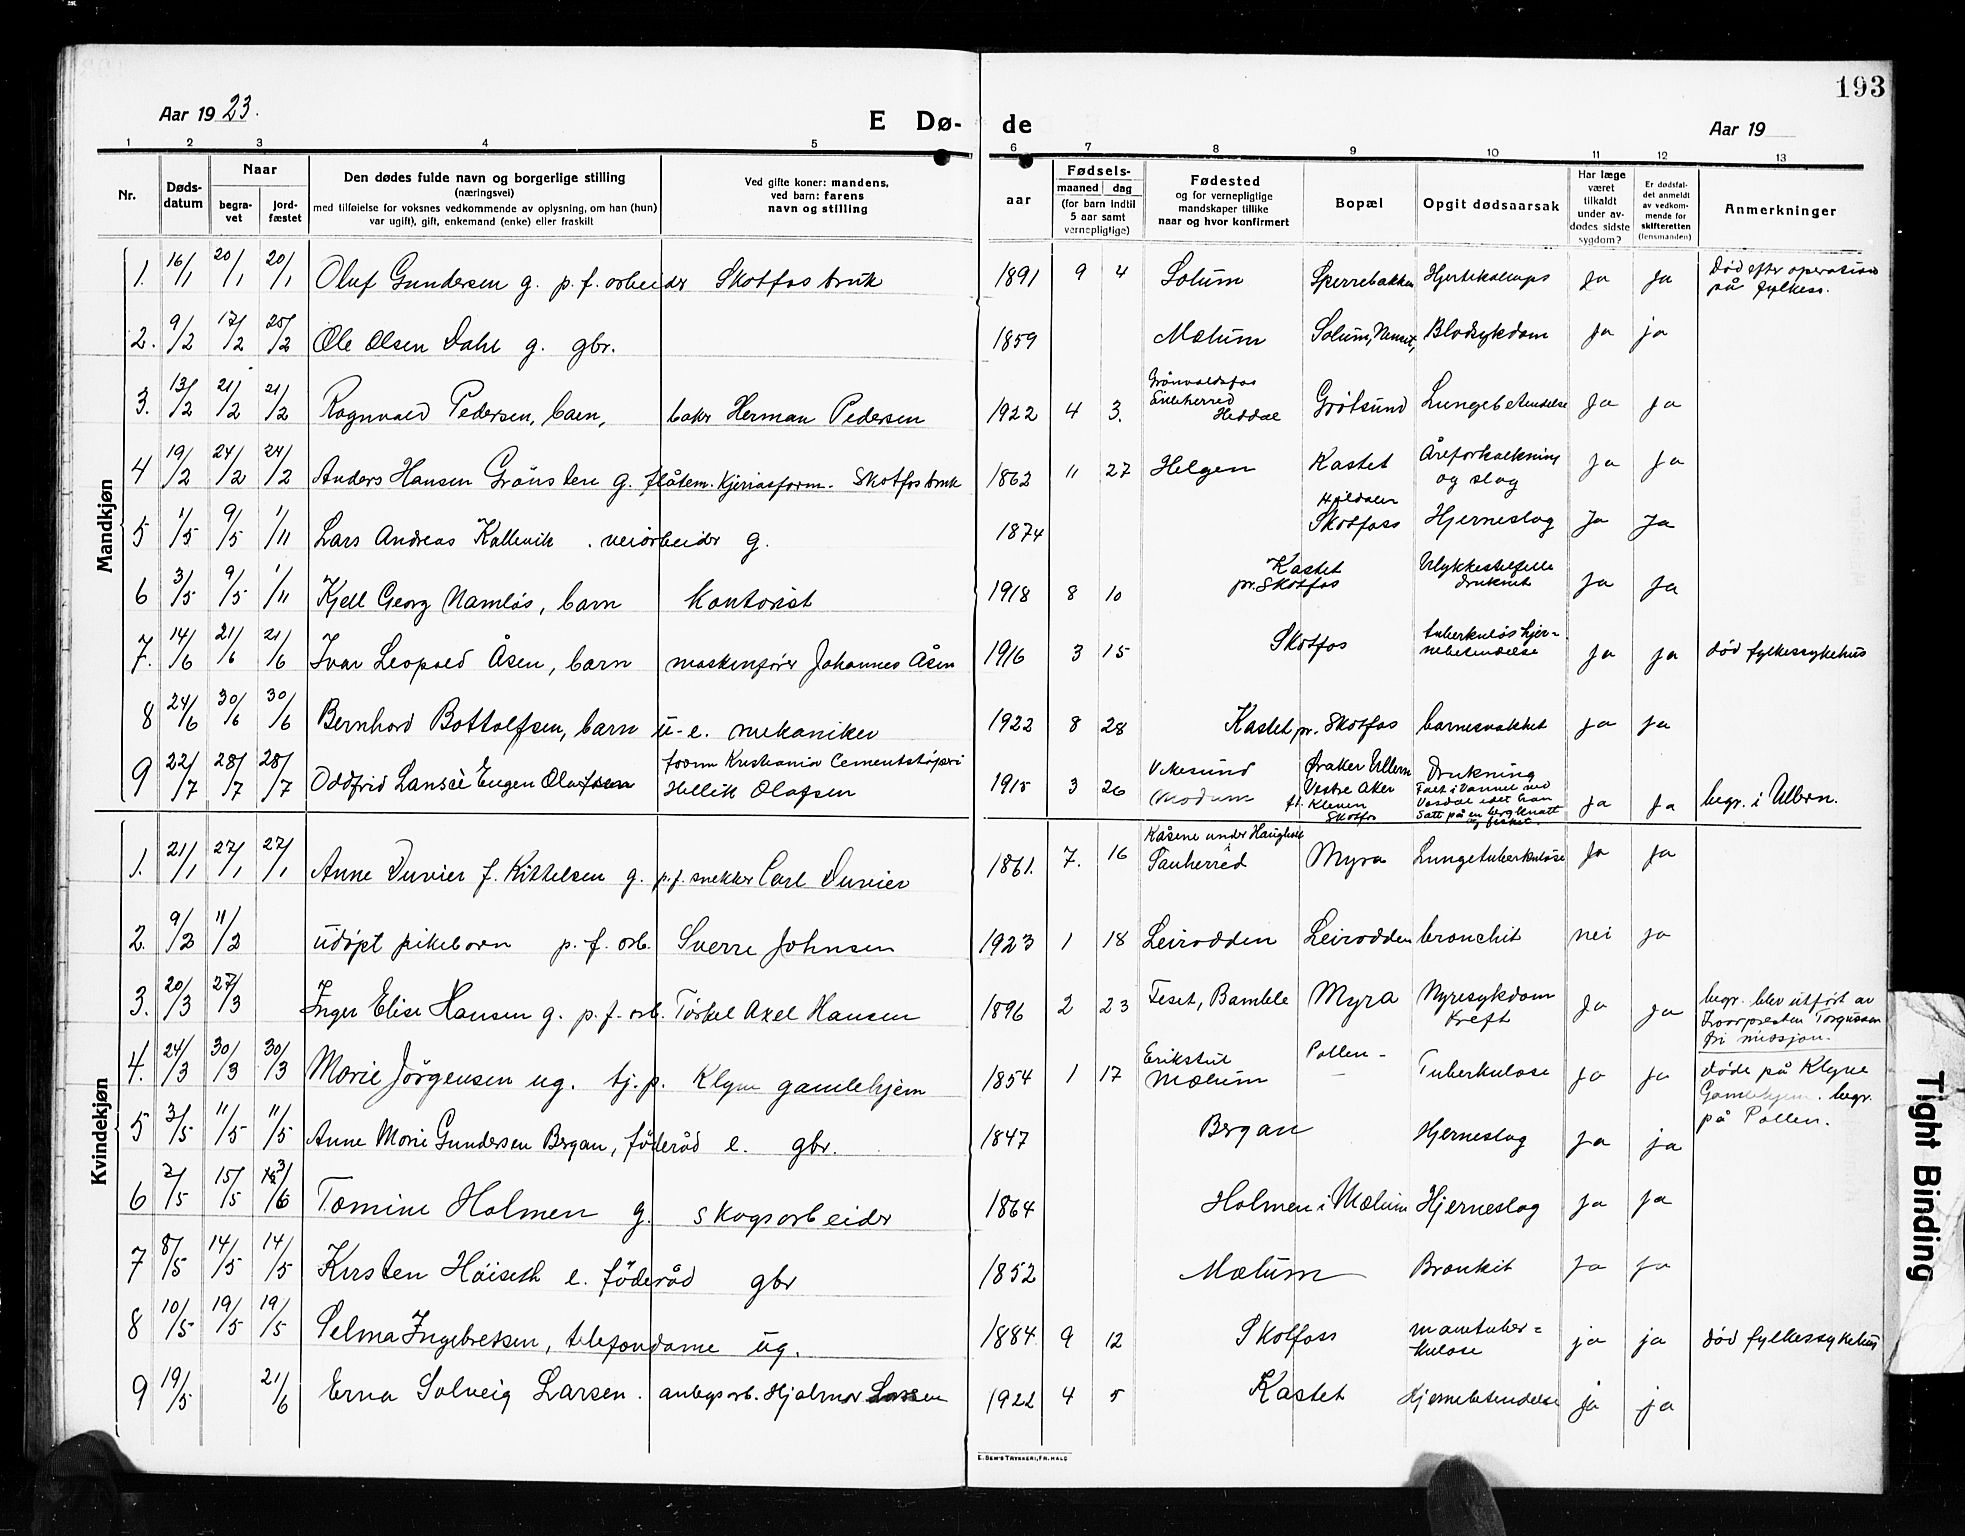 193
Aar 1923.
E Dø-de
Aar 19
1 2 3 4 5 6 7 8 9 10 11 12 13
Nr.
Døds-datum
Naar
begra-vet
jord-fæstet
Den dødes fulde navn og borgerlige stilling
(næringsvei)
med tilføielse for voksnes vedkommende av oplysning, om han (hun)
var ugift), gift, enkemand (enke) eller fraskilt
Ved gifte koner: mandens,
ved barn: farens
navn og stilling
aar
Fødsels-
maaned dag
(for barn indtil
5 aar samt
vernepligtige)
Fødested
og for vernepligtige
mandskaper tillike
naar og hvor konfirmert
Bopæl
Opgit dødsaarsak
Har læge
været
tilkaldt
under av-
dødes sidste
sygdom?
Er dødsfal-
det anmeldt
av vedkom-
mende for
skifteretten
(lensmanden)
Anmerkninger
Mandkjøn
1. 16/1 20/1 20/1 Oluf Gundersen g. p. f. arbeider Skotfos bruk 1891 9 4 Solum Sperrebakken Hjertekolaps Ja Ja Død efter operation
på fylkess.
2. 9/2 17/2 25/2 Ole Olsen Dahl g. gbr. 1859 Mælum Solum, Blodsykdom Ja ja
3. 13/2 21/2 21/2 Ragnvald Pedersen, barn, baker Herman Pedersen 1922 4 3. Grönvoldsfos
Heddal Grötsund Lungebetendelse Ja Ja
4 19/2 24/2 24/2 Anders Hansen Grönsten g. flåtem. Skotfos bruk 1862 11 27 Helgen Kastet Åreforkalkning
og slag Ja Ja
5 1/5 9/5 1/11 Lars Andreas Kallevik . veiarbeider g. 1874 Skotfoss Hjerneslag Ja Ja
6 3/5 9/5 1/11 Kjell Georg Namløs, barn kontorist 1918 8 10 Kastet
pr. Skotfos Ulykkestilfelle
druknet Ja Ja
7. 14/6 21/6 21/6 Ivar Leopold Åsen, barn maskinfører Johannes Åsen 1916 3 15 Skotfos tuberkuløs hjer-
nebetendelse Ja Ja død fylkessykehus
8 24/6 30/6 30/6 Bernhard Bottolfsen, barn u. e. mekaniker 1922 8 28 Kastet pr. Skotfos barnesvakhet Ja Ja
9 22/7 28/7 28/7 Oddfrid Eugen Olafsen form Kristiania Cementstøperi
Hellik Olafsen 1915 3 26 Vikesund
Modum Øraker Ullern
Vestre Aker
f. Kleven
Skotfos Drukning
Falt i vannet ved
Satt på en bergknatt
og fisket. Ja Ja begr. i Ullern.
Kvindekjøn
1. 21/1 27/1 27/1 Anne Duvier f. Kittelsen g. p. f. snekker Carl Duvier 1861. 7. 16 Kåsene under
Sauherred Myra Lungetuberkulose Ja Ja
2. 9/2 11/2 udøpt pikebarn p. f. arb. Sverre Johnsen 1923 1 18 Leirodden Leirodden bronchit nei ja
3. 20/3 27/3 Inger Elise Hansen g. p. f. arb. Torkel Axel Hansen 1896 2 23 Feset, Bamble Myra Nyresykdom
kreft Ja Ja begr. blev utført av
Torgussen
fri misjon.
4. 24/3 30/3 30/3 Marie Jörgensen ug. tj. p. Klyve gamlehjem 1854 1 17 Erikstul
Mælum Pollen - Tuberkulose Ja Ja døde på Klyve
Gamlehjem. begr.
på Pollen.
5 3/5 11/5 11/5 Anne Marie Gundersen Bergan, föderåd e. gbr. 1847 Bergan Hjerneslag Ja ja
6 7/5 15/5 3/6 Tomine Holmen g. skogsarbeider 1864 Holmen i Mælum Hjerneslag Ja Ja
7 8/5 14/5 14/5 Kirsten Höiseth e. föderåd gbr 1852 Mælum Bronkit Ja Ja
8 10/5 19/5 19/5 Selma Ingebretsen, telefondame ug. 1884 9 12 Skotfoss
kulose ja ja død fylkessykehus
9 19/5 21/6 Erna Solveig Larsen. anlegsarb. Hjalmar Larsen 1922 4 5 Kastet Hjernebetendelse ja ja
E. SEM'S TRYKKERI, FR.HALD
Tight Binding